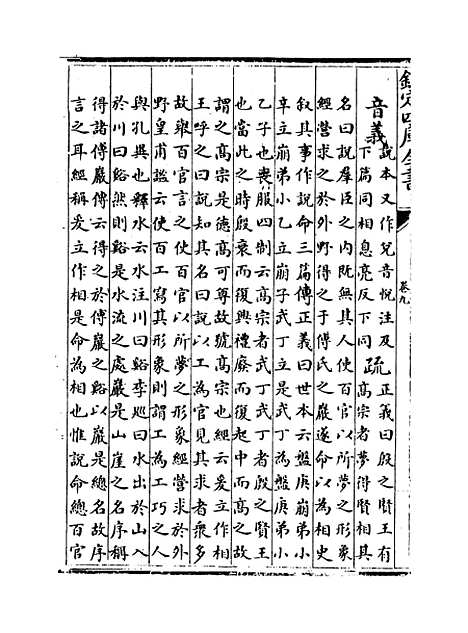 欽定四庫全書
卷九
音義
說本又作兌音悅注及
下篇同相息亮反下同
疏
正義曰殷之賢王有
高宗者夢得賢相其
名曰說羣臣之内既無其人使百官以所夢之形象
經營求之於外野得之于傅氏之巖遂命以為相史
叙其事作說命三篇傳正義曰世本云盤庚崩弟小
辛立崩弟小乙立崩子武丁立是武丁為盤庚弟小
乙子也喪服四制云高宗者武丁武丁者殷之賢王
也當此之時殷衰而復興禮廢而復起中而高之故
謂之高宗是德高可尊故號高宗也經云爰立作相
王呼之曰說知其名曰說以工為官見其求者衆多
故舉百官言之使百官以所夢之形象經營求於外
野皇甫謐云使百工寫其形象則謂工為工巧之人
與孔異也釋水云水注川曰谿李廵曰水出於山入
於川曰谿然則谿是水流之處巖是山崖之名序稱
得諸傅巖傳云得之於傅巖之谿以巖是總名故序
言之耳經稱爰立作相是命為相也惟說命總百官